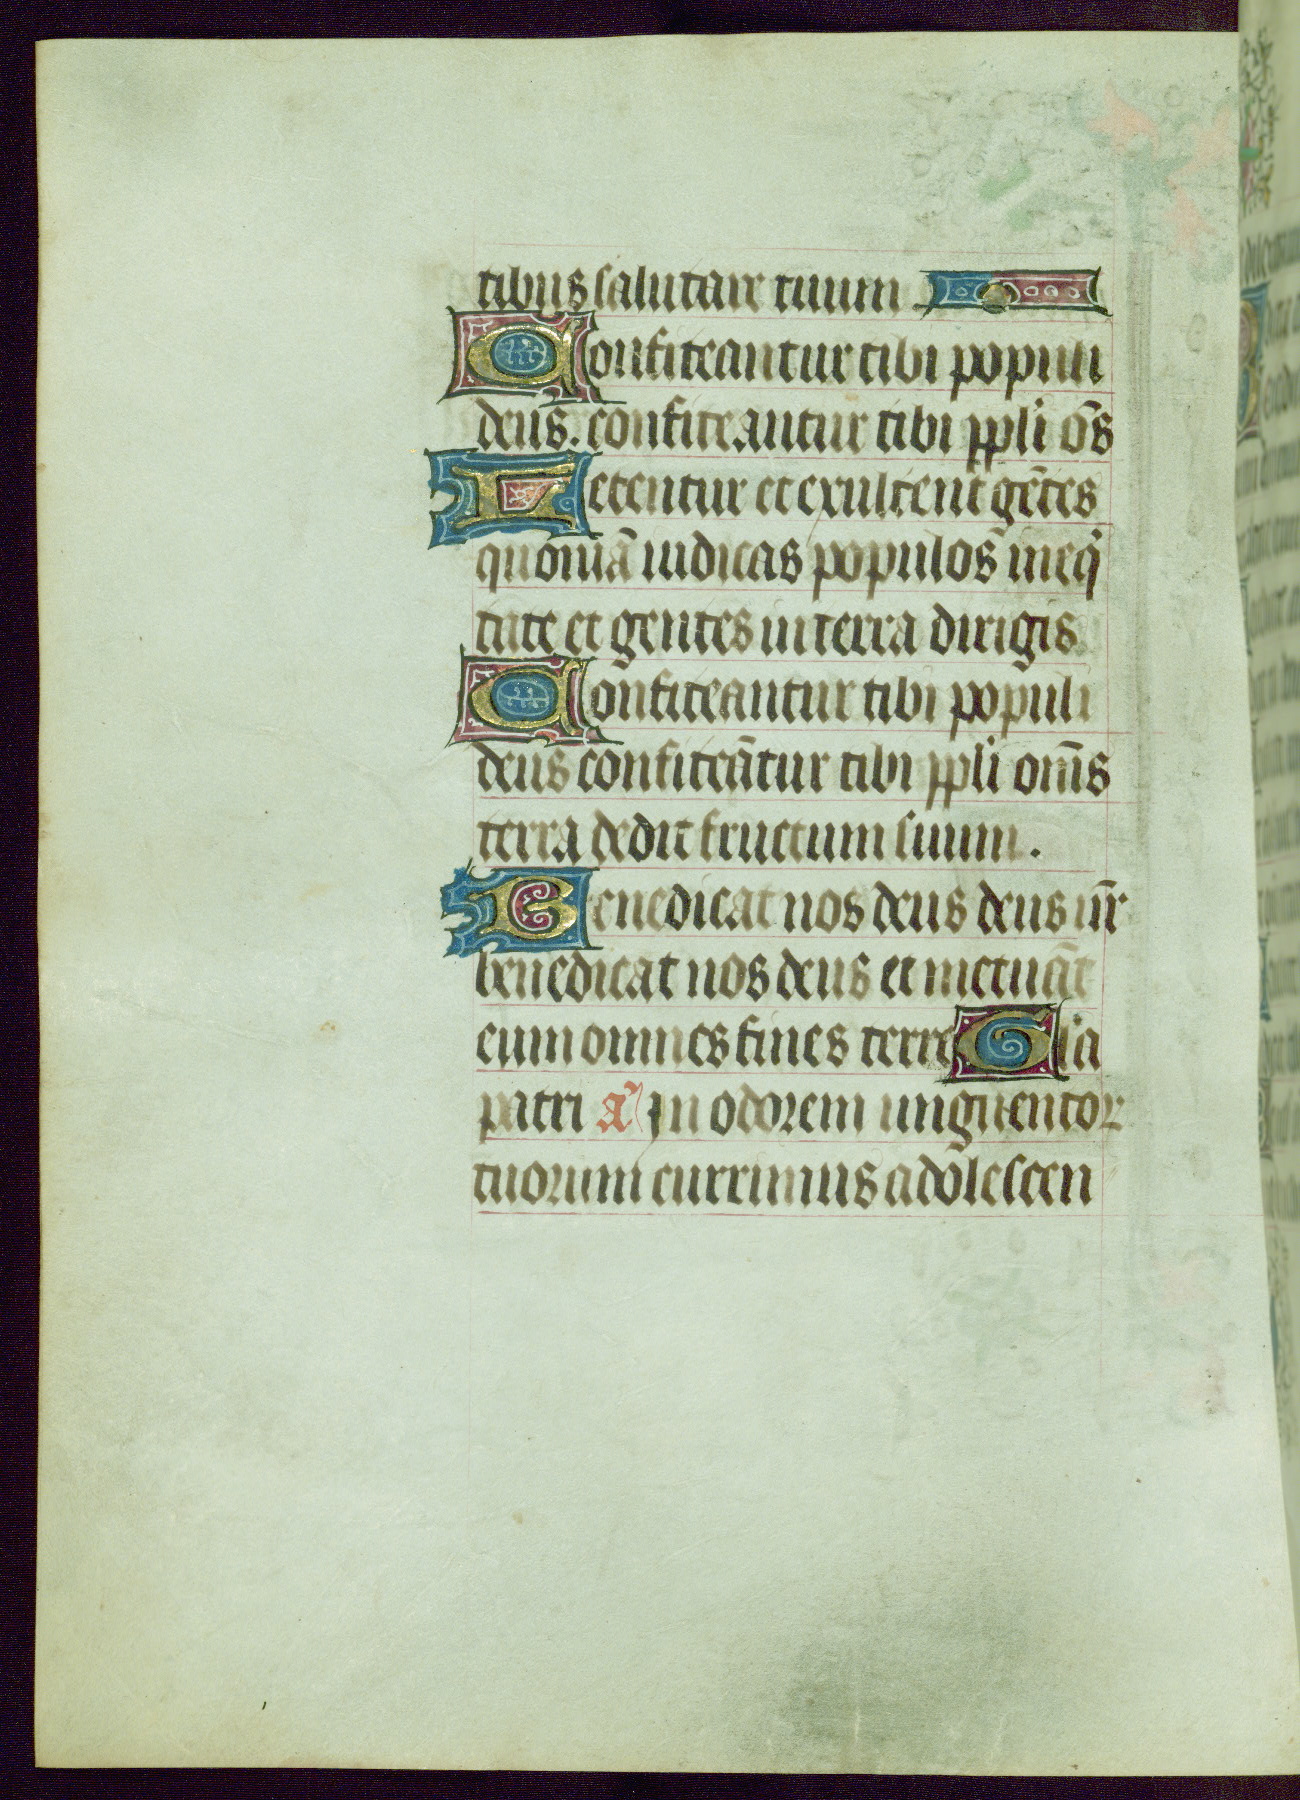 tibus salutare tuum
Confiteantur tibi populi
deus. confiteantur tibi ppli oēs
Letentur et exultent gētes
quoniā iudicas populos in eq̄
tate et gentes in terra dirigis
Confiteantur tibi populi
deus confiteātur tibi ppli om̄s
terra dedit fructum suum.
Benedicat nos deus deus nr̄
benedicat nos deus et metuāt
eum omnes fines terre Gl̄ia
patri a᷑ In odorem unguentor
tuorum currimus adolescen